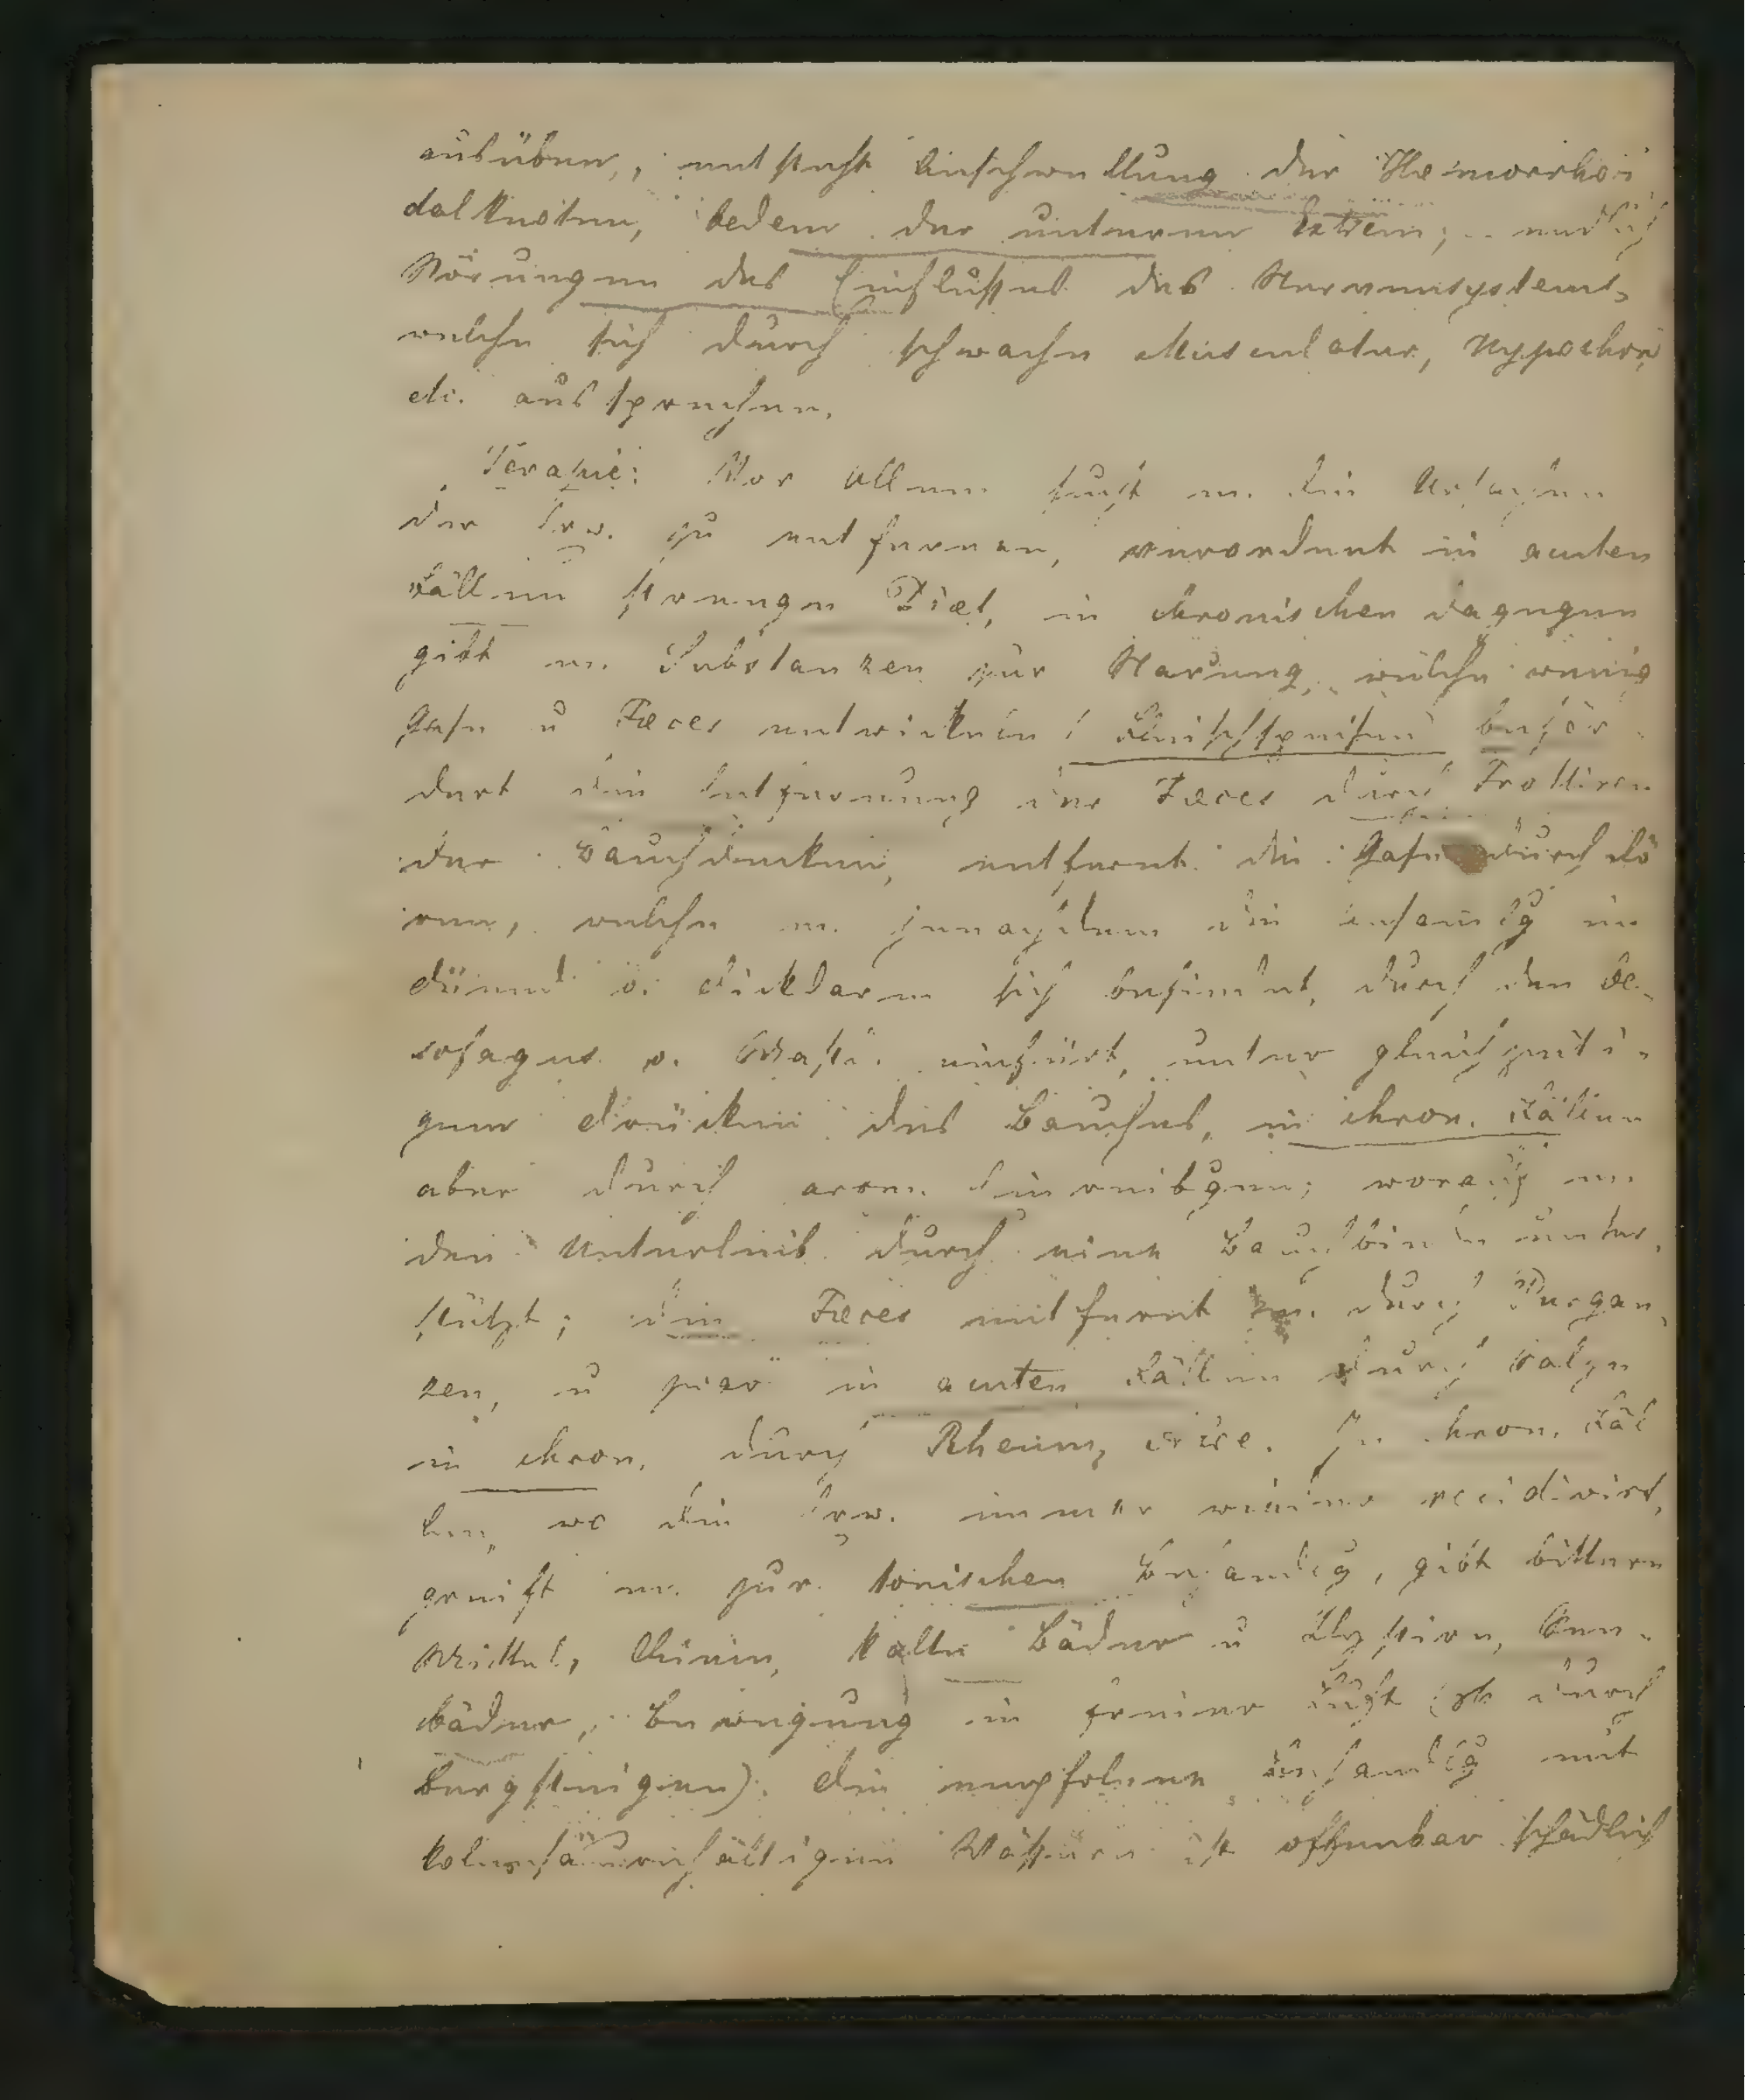 ausüben, entsteht Anschwellung der Hæmorrhoi
dalknoten, Oedem der unteren Extrem; endlich
Störungen des Einflußes des Nervensystems,
welche sich durch schwache Musculatur, Hypochon
etc. aussprechen.
Terapie: Vor Allem sucht m. die Ursachen
der Erw. zu entfernen, verordnet in acuten
Fällen strenge Diæt, in chronischen dagegen
gibt m. Substanzen zur Narung, welche wenig
Gase u Fæces entwickeln: Fleischspeisen beför
dert die Entfernung der Fæces durch Frottiren
der Bauchdecken, entfernt die Gase durch Rö
ren, welche m. jenachdem die
Dünnd o. Dickdarm sich befindet, durch den Oe
sofagus o. einfürt, unter gleichzeiti
gem drücken des Bauches, in chron. Fällen
aber durch arom. Einreibgen; worauf m.
den Unterleib durch eine Bauchbinde unter
stützt; die Fæces entfernt m. durch Purgan
zen, u zwar in acuten Fällen durch Salze
in chron. durch Rheum, In chron. Fäl
len, wo die Erw. immer wieder recidivirt,
greift m. zur tonischen Behandlg, gibt bittere
Mittel, Chinin, kalte Bäder u Klystire, See
bäder, Bewegung in freier Luft (z.B. durch
bergsteigen). Die empfolene Behandlg mit
kolensäurehältigen Wässern ist offenbar schädlich